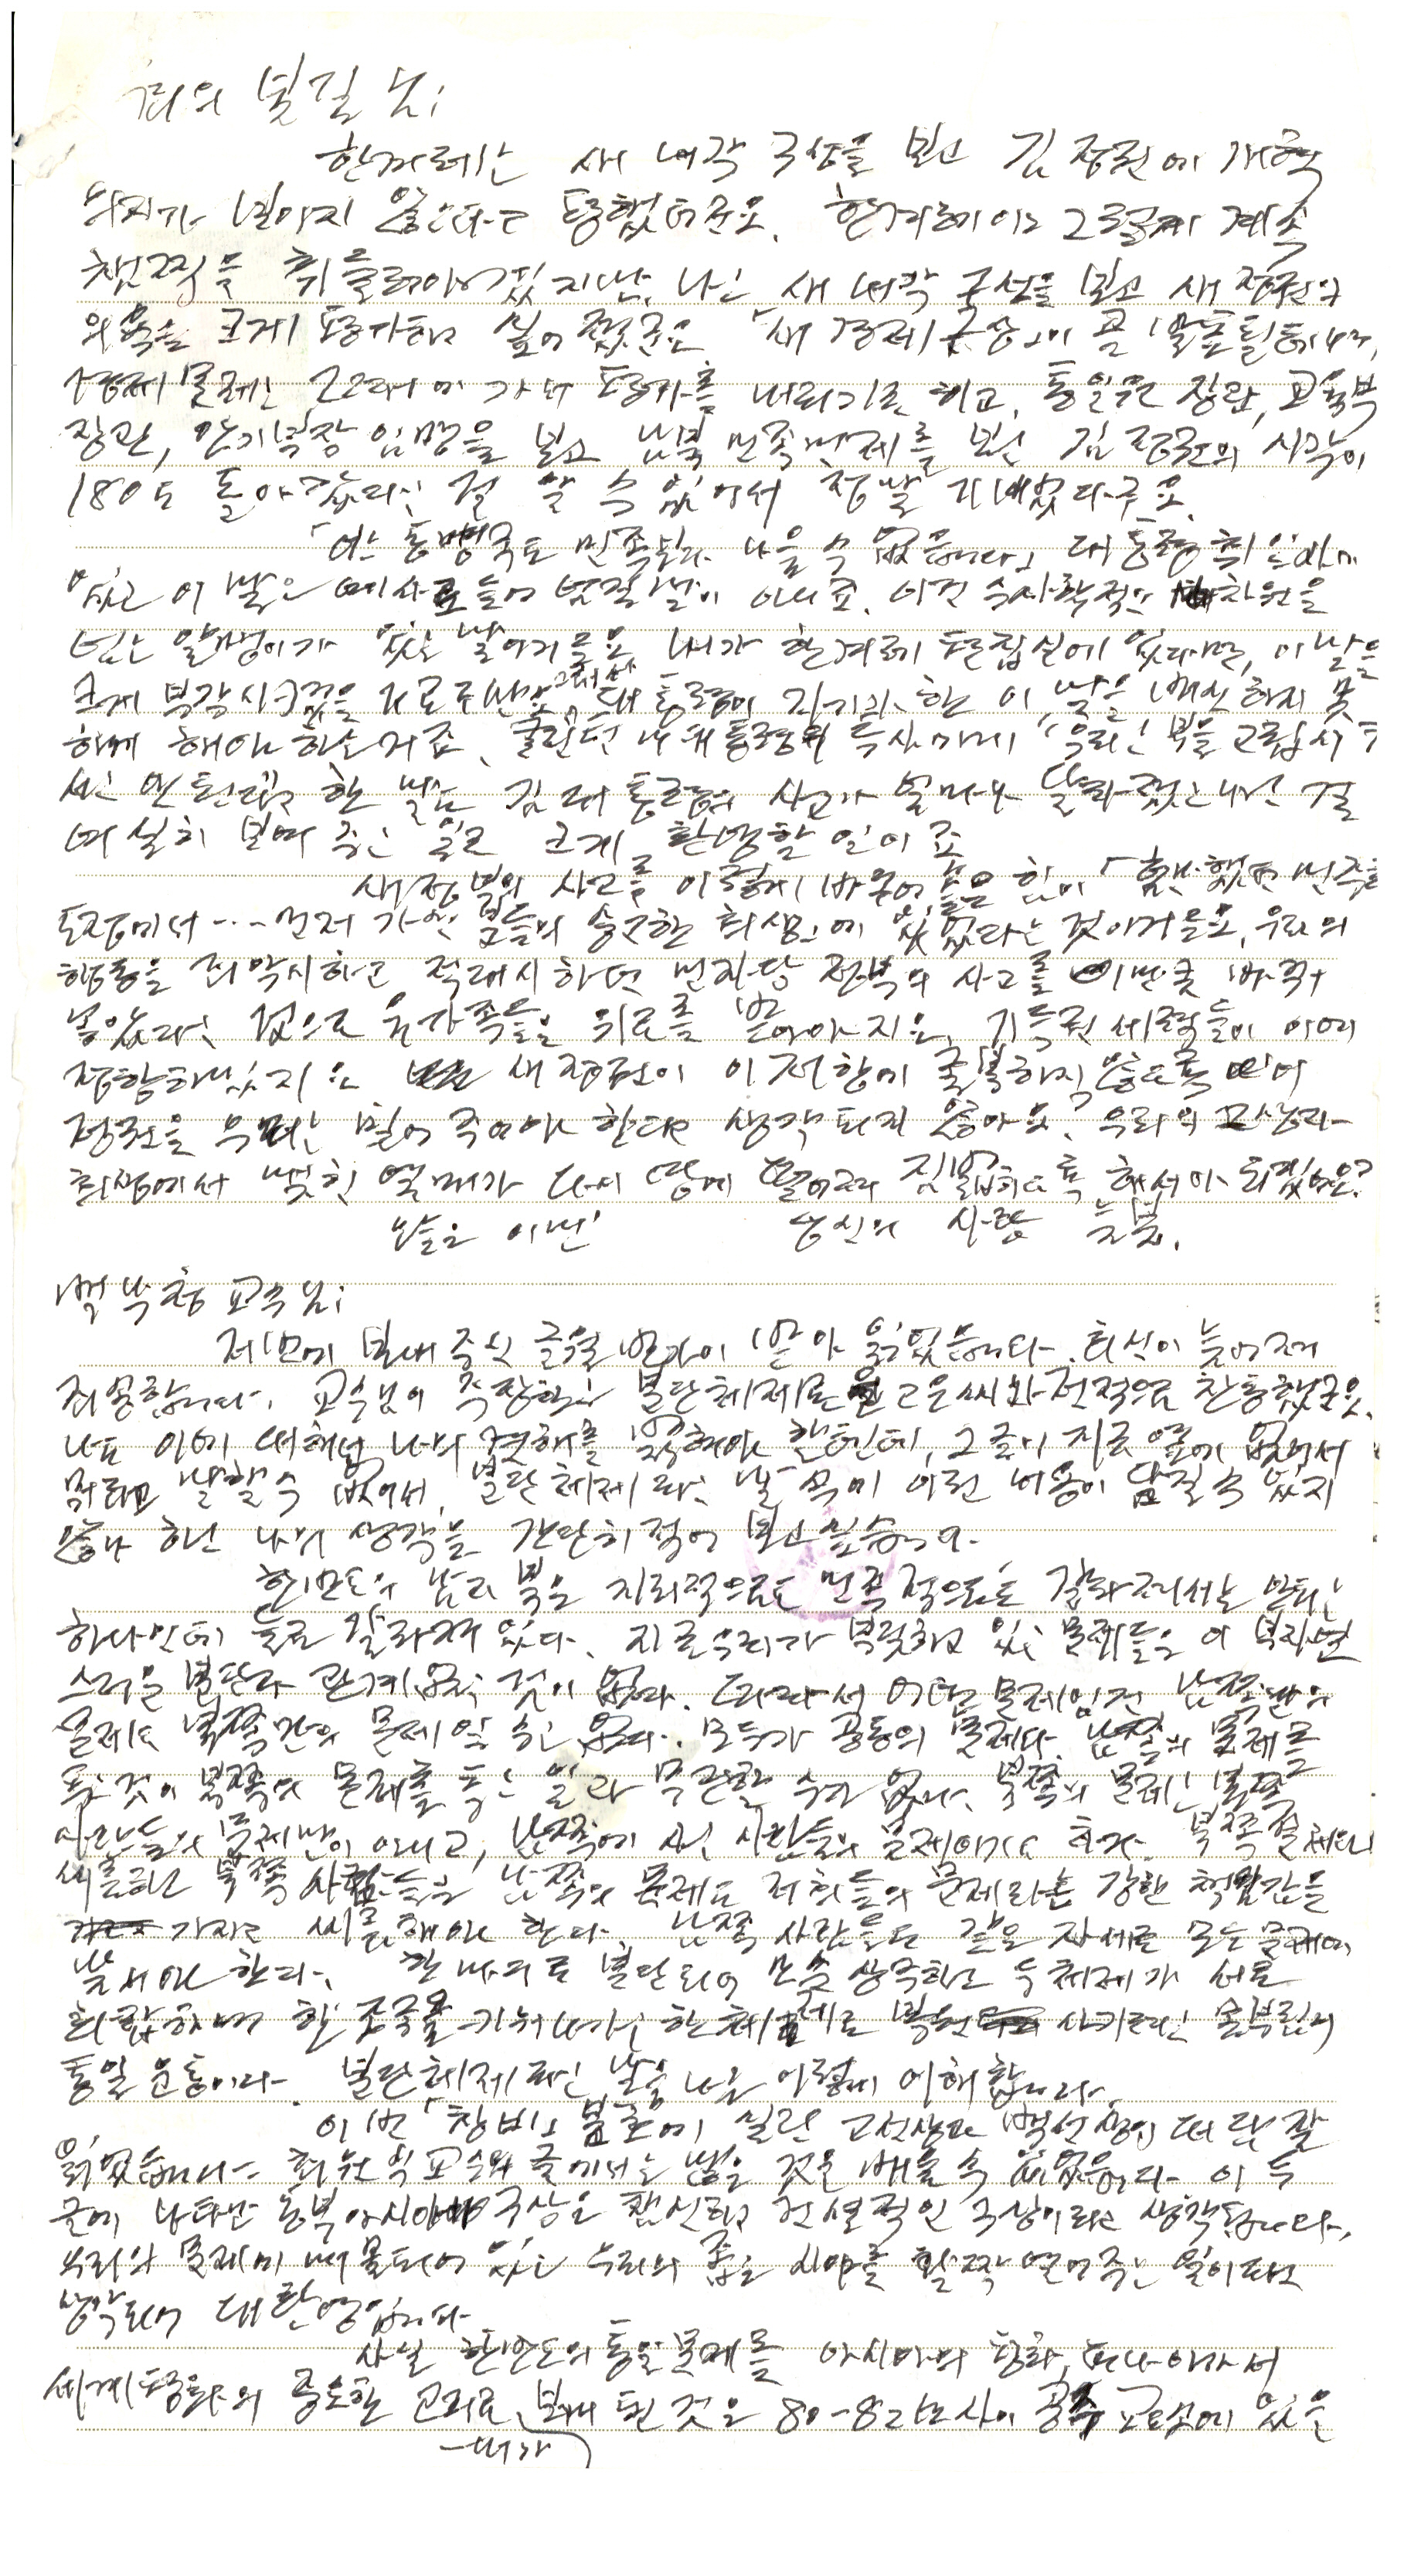 나의 봄길 님;
한겨레는 새 내각 구상을 보고 김 정권에 개혁
의지가 보이지 않는다고 평했더군요. 한겨레야 그렇게 계속
채찍을 휘둘러야겠지만, 나는 새 내각 구성을 보고 새 정권의
의욕을 크게 평가하고 싶어졌군요. 「새 경제구상」이 곧 발표될 테니까,
경제 문제는 그것대로 가서 평가를 내리기로 하고, 통일원 장관, 교육부
장관, 안기부장 임명을 보고 남북 민족 문제를 보는 김 정권의 시각이
180도 돌아갔다는 걸 알 수 있어서 정말 기뻤었다구요.
「어느 동맹국도 민족보다 나을 수 없습니다」 대통령 취임사에
있는 이 말은 예사로 들어 넘길 말이 아니죠. 이건 수사학적인 차원을
넘는 알맹이가 있는 말이거든요. 내가 한겨레 편집실에 있다면, 이 말을
크게 부각시켰을 거로구만요. 그래서 대통령이 자기가 한 이 말을 배신하지 못
하게 해야 하는 거죠. 클린턴 대통령의 특사에게 「우리는 북을 고립시켜
서는 안 된다」고 한 말도 김 대통령의 사고가 얼마나 달라졌는가는 걸
여실히 보여 주는 일로 크게 환영할 일이죠.
새 정부의 사고를 이렇게 바꾸어 놓은 힘이 「험난했던 민주화
도정에서 …… 먼저 가신 분들의 숭고한 희생」에 있었다는 것이거든요. 우리의
행동을 죄악시하고 적대시하던 민자당 정부의 사고를 이만큼 바꾸어
놓았다는 것으로 유가족들은 위로를 받아야지요. 기득권 세력들이 이에
저항하겠지요. 새 정권이 이 저항에 굴복하지 않도록 김
정권을 우리는 밀어 주어야 한다고 생각되지 않아요? 우리의 고생과
희생에서 맺힌 열매가 다시 땅에 떨어져 짓밟히도록 해서야 되겠어요?
오늘은 이만 당신의 사랑 늦봄.
백낙청 교수님;
저번에 보내 주신 글월 반가이 받아 읽었습니다. 회신이 늦어져
죄송합니다. 교수님이 주장하는 분단체제론은 고은 씨와 전적으로 찬동했군요.
나도 이에 대해선 나의 견해를 밝혀야 할 텐데, 그 글이 지금 옆에 없어서
뭐라고 말할 수 없어서, 분단체제라는 말 속에 이런 내용이 담길 수 있지
않나 하는 나의 생각을 간단히 적어 보고 싶습니다.
한반도의 남과 북은 지리적으로도 민족적으로도 갈라져서는 안 되는
하나인데 둘로 갈라져 있다. 지금 우리가 부딪히고 있는 문제들은 이 부자연
스러운 분단과 관계없는 것이 없다. 따라서 어떤 문제이건 남쪽만의
문제도 북쪽만의 문제일 수는 없다. 모두가 공동의 문제다. 남쪽의 문제를
푸는 것이 북쪽의 문제를 푸는 일과 무관할 수가 없다. 북쪽의 문제는 북쪽
사람들의 문제만이 아니고, 남쪽에 사는 사람들의 문제이기도 하다. 북쪽 문제와
씨름하는 북쪽 사람들은 남쪽의 문제도 저희들의 문제라는 강한 책임감을
가지고 씨름해야 한다. 남쪽 사람들도 같은 자세로 모든 문제에
맞서야 한다. 한 나라로 분단되어 모순 상극하는 두 체제가 서로
화합하며 한 조국을 키워나가는 한 체제로 복원시키려는 몸부림이
통일운동이다. 분단체제라는 말을 나는 이렇게 이해합니다.
이번 「창비」 봄호에 실린 고 선생과 백 선생의 대담 잘
읽었습니다. 최원식 교수의 글에서는 많은 것을 배울 수 있었습니다. 이 두
글에 나타난 동북아시아 구상은 참신하고 건설적인 구상이라고 생각됩니다.
우리의 문제에 매몰되어 있는 우리의 좁은 시야를 활짝 열어주는 일이라고
생각되어 대환영입니다.
사실 한반도의 통일 문제를 아시아의 평화, 더 나아가서
세계평화의 중요한 고리로 보게 된 것은 80-82년 사이 공주 교도소에 있을
내가